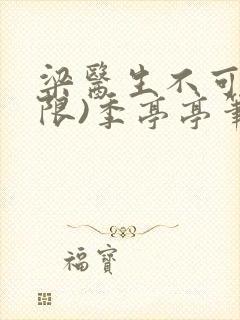 梁醫生不可
限)季亭亭筆
福寶